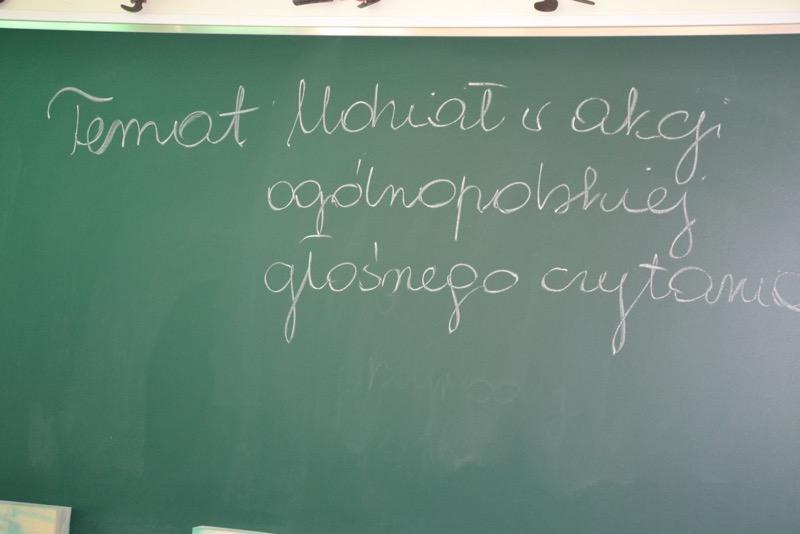 Temat Udział w akcji
ogólnopolskiej
głośnego czytania